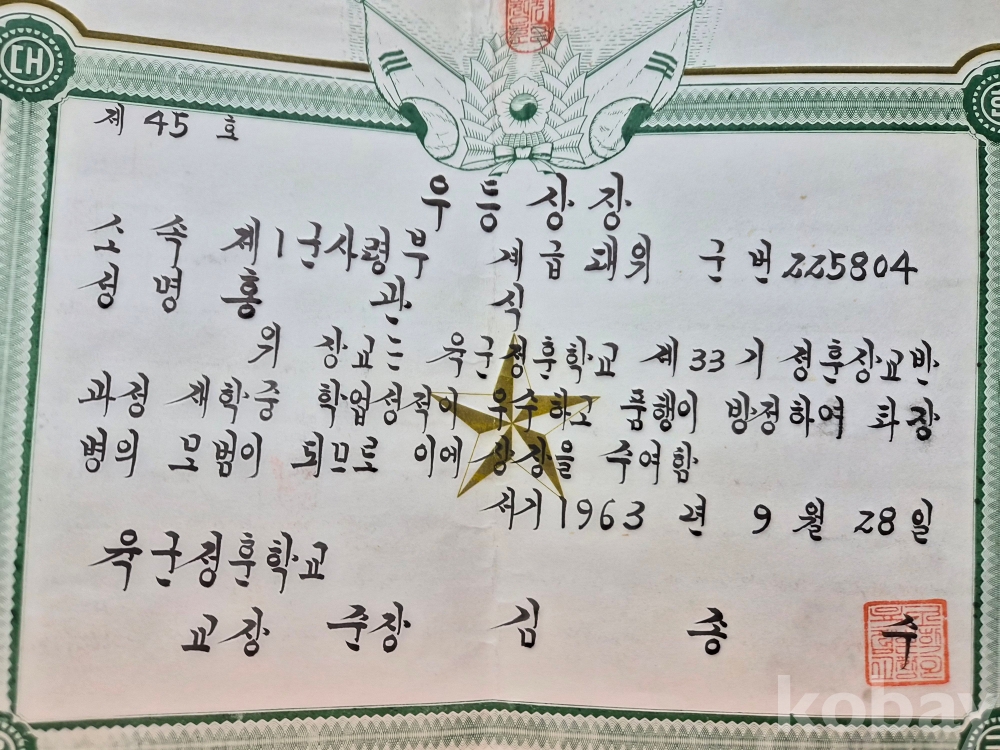 대
제 45 호
우등상장
소속 제1군사령부 계급 대위 군번 225804
성명 홍관식
위 장교는 육군정훈학교 제33기 정훈장교반
과정 재학중 학업성적이 우수하고 품행이 방정하여 타장
병의 모범이 되므로 이에 상장을 수여함
서기 1963년 9월 28일
육군정훈학교
교장 준장 김종수
kobay